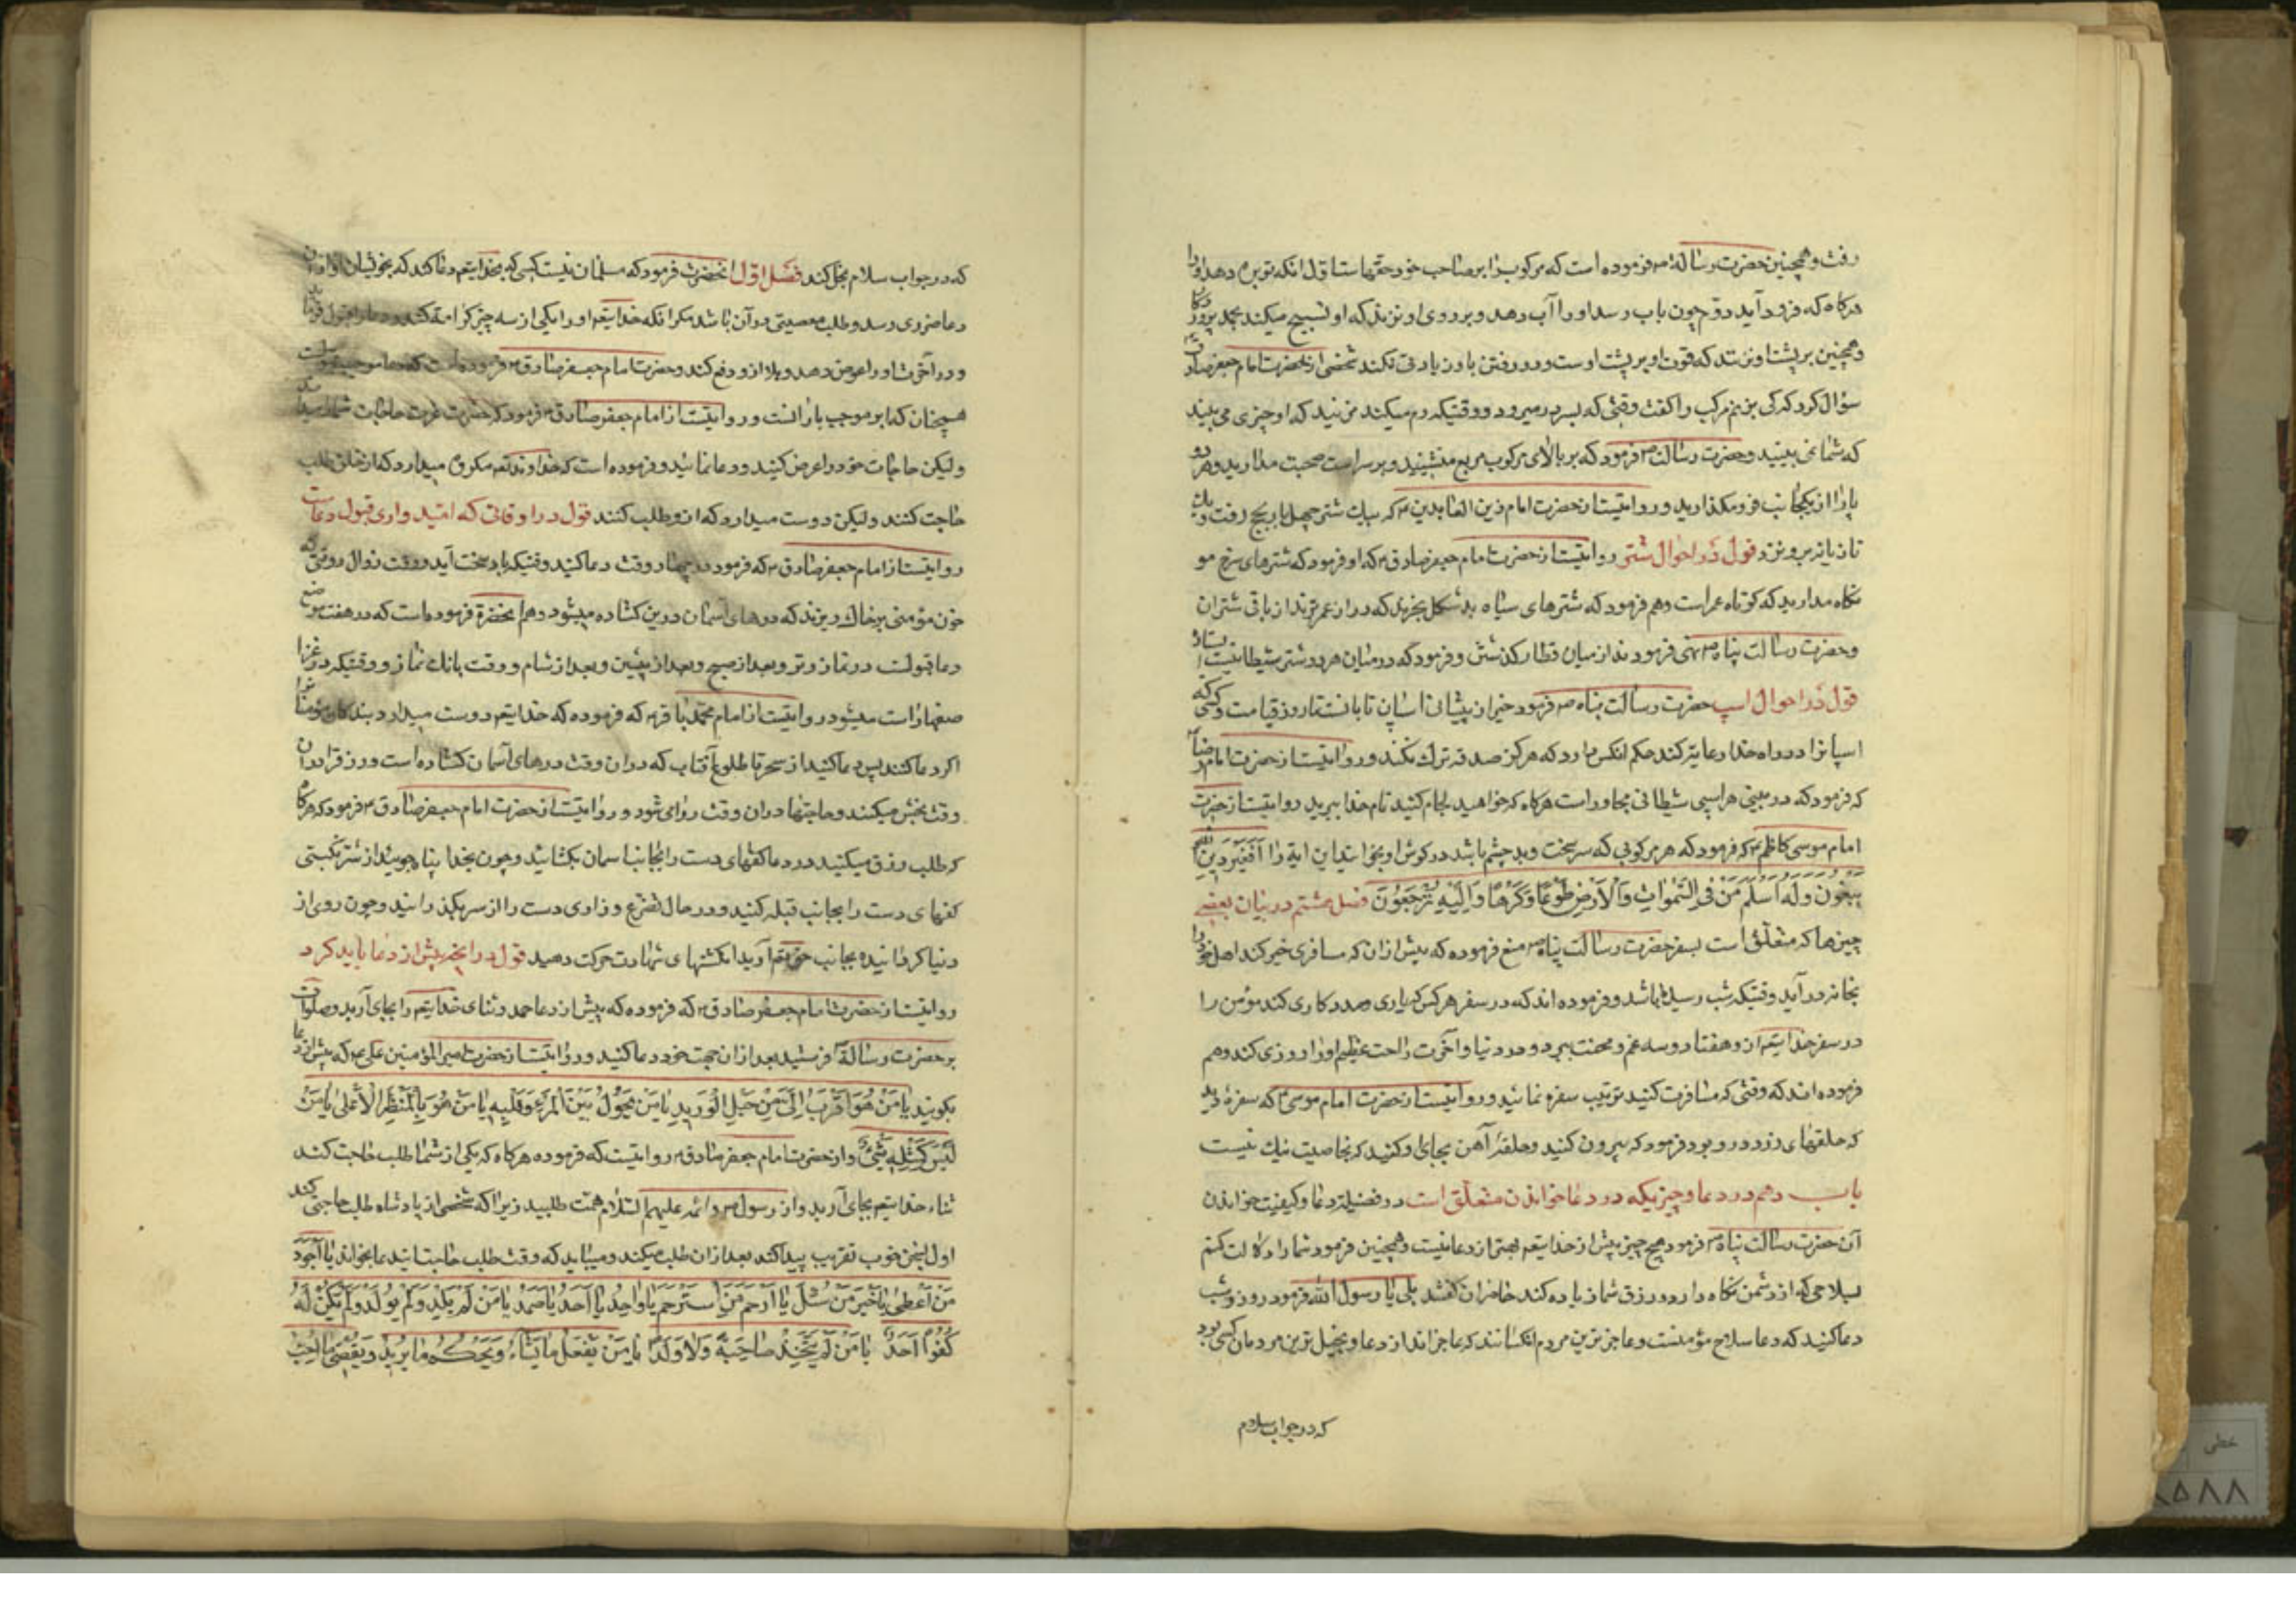 رفت و همچنین حضرت رسالة ص فرموده است که مرکوب را بر صاحب خود حقهاست اول انکه نوبن دهد او را
هرکاه که فرود آید دوم چون باب رسد او را آب دهد و بر روی او نزند که او تسبیح میکند بحمد پروردکار
و همچنین بر پشت او نزند که قوت او بر پشت اوست و در رفتن با و زیادتی نکند شخصی از حضرت امام جعفر صادق
سؤال کرد که کی بزنم مرکب را کفت وقتی که بسر در میرود و وقتیکه رم میکند مزنید که او چیزی می بیند
که شما نمی بینید و حضرت رسالت ص فرمود که بر بالای مرکوب مربع منشینید و بر سر راست صحبت مدارید و هر دو
پا را از یکجانب فرو مکذارید و روایتست از حضرت امام زین العابدین ع که بیک شتر چهل بار بحج رفت و یک
تازیانه برو نزد قول در احوال شتر روایتست از حضرت امام جعفر صادق ع که او فرمود که شترهای سرخ مو
نکاه مدارید که کوتاه عمر است و هم فرمود که شترهای سیاه بد شکل بخرید که دراز عمرترند از باقی شتران
و حضرت رسالت پناه ص نهی فرمودند از میان قطار کذشتن و فرمود که در میان هر دو شتر شیطانیست ایستاده
قول در احوال اسپ حضرت رسالت پناه ص فرمود خیر از پیشانی اسپان تابانست تا روز قیامت و کسی که
اسپانرا در راه خدا رعایة کند حکم انکس دارد که هرکز صدقه ترک نکند و روایتست از حضرت امام رضا
که فرمود که در بینی هر اسپی شیطانی مجاور است هرکاه که خواهید لجام کنید نام خدا ببرید روایتست از حضرت
امام موسی کاظم ع که فرمود که هر مرکوبی که سر سخت و بد چشم باشد در کوش او بخوانید این ایة را اَفَغَیْرَ دِینِ اللّٰهِ
یَبْغُونَ وَلَهُ اَسْلَمَ مَنْ فِی السَّمٰوَاتِ وَالْاَرْضِ طَوْعًا وَکَرْهًا وَاِلَیْهِ تُرْجَعُونَ فصل هشتم در بیان بعضی
چیزها که متعلق است بسفر حضرت رسالت پناه ص منع فرموده که پیش ازان که مسافری خبر کند اهل خود را
بخانه در آید وقتیکه شب رسیده باشد و فرموده اند که در سفر هر کس که یاری و مددکاری کند مؤمن را
در سفر خدایتعم ازو هفتاد و سه غم و محنت ببرد و در دنیا و آخرت راحت عظیم او را روزی کند و هم
فرموده اند که وقتی که مسافرت کنید ترتیب سفره نمائید و روایتست از حضرت امام موسی ع که سفرهٔ دید
که حلقهای زر درو بود فرمود که بیرون کنید و حلقهٔ آهن بجای او کنید که بخاصیت نیک نیست
باب دهم در دعا و چیزیکه در دعا خواندن متعلق است در فضیلة دعا و کیفیت خواندن
آن حضرت رسالت پناه ص فرمود هیچ چیز پیش از خدایتعم بهتر از دعا نیست و همچنین فرمود شما را دلالت کنم
بسلاحی که از دشمن نکاه دارد و رزق شما زیاده کند حاضران کفتند بلی یا رسول الله فرمود روز و شب
دعا کنید که دعا سلاح مؤمنست و عاجزترین مردم انکسانند که عاجز اند از دعا و بخیل ترین مردمان کسی بود
که در جواب سلام
که در جواب سلام بخل کند فصل اول انحضرت فرمود که مسلمان نیست کسی که بخدایتعم دعا کند که بخویشان او ازان
دعا ضرری رسد و طلب معصیتی در آن باشد مکر انکه خدایتعم او را یکی از سه چیز کرامة کند
و در آخرت او را عوض دهد و بلا ازو دفع کند و حضرت امام جعفر صادق ع فرموده است که دعا موجب
همچنان که ابر موجب بارانست و روایتست از امام جعفر صادق ع فرمود که حضرت عزت حاجات شما را میداند
و لیکن حاجات خود را عرض کنید و دعا نمائید و فرموده است که خداوند تعم مکروه میدارد که از خلق طلب
حاجت کنند و لیکن دوست میدارد که ازو طلب کنند قول در اوقاتی که امید واری قبول دعاست
روایتست از امام جعفر صادق ع که فرمود در چهار وقت دعا کنید وقتیکه باد سخت آید و وقت زوال و وقتی که
خون مؤمنی بر خاک ریزند که درهای آسمان درین کشاده میشود و هم انحضرة فرموده است که در هفت موضع
دعا قبولست در نماز وتر و بعد از صبح و بعد از پیشین و بعد از شام و وقت بانک نماز و وقتیکه در غزا
صفها راست میشود و روایتست از امام محمد باقر ع که فرموده که خدایتعم دوست میدارد بندکان مؤمن را
اکر دعا کنند پس دعا کنید از سحر تا طلوع آفتاب که دران وقت درهای آسمان کشاده است و رزق را دران
وقت بخش میکنند و حاجتها دران وقت روا می شود و روایتست از حضرت امام جعفر صادق ع فرمود که هرکاه
که طلب رزق میکنید در دعا کفهای دست را بجانب اسمان بکشائید و چون بخدا پناه جویند از شر نکبتی
کفهای دست را بجانب قبله کنید و در حال تضرع و زاری دست را از سر بکذرانید و چون روی از
دنیا کردانیده بجانب حقتعم آرید انکشتهای شهادت حرکت دهید قول در انچه پیش از دعا باید کرد
روایتست از حضرت امام جعفر صادق ع که فرموده که پیش از دعا حمد و ثنای خدایتعم را بجای آرید و صلوات
بر حضرت رسالة فرستید بعد ازان جهت خود دعا کنید و روایتست از حضرت امیر المؤمنین علی ع که پیش از دعا
بکویید یَا مَنْ هُوَ اَقْرَبُ اِلَیَّ مِنْ حَبْلِ الْوَرِیدِ یَا مَنْ یَحُولُ بَیْنَ الْمَرْءِ وَقَلْبِهِ یَا مَنْ هُوَ بِالْمَنْظَرِ الْاَعْلٰی یَا مَنْ
لَیْسَ کَمِثْلِهِ شَیْءٌ و از حضرت امام جعفر صادق ع روایتست که فرموده هرکاه که یکی از شما طلب حاجت کند
ثناء خدایتعم بجای آرید و از رسول ص و ائمه علیهم السلام همت طلبید زیرا که شخصی از پادشاه طلب حاجتی کند
اول بسخن خوب تقریب پیدا کند بعد ازان طلب میکند و میباید که وقت طلب حاجت این دعا بخواند یَا اَجْوَدَ
مَنْ اَعْطٰی یَا خَیْرَ مَنْ سُئِلَ یَا اَرْحَمَ مَنِ اسْتُرْحِمَ یَا وَاحِدُ یَا اَحَدُ یَا صَمَدُ یَا مَنْ لَمْ یَلِدْ وَلَمْ یُولَدْ وَلَمْ یَکُنْ لَهُ
کُفُوًا اَحَدٌ یَا مَنْ لَمْ یَتَّخِذْ صَاحِبَةً وَلَا وَلَدًا یَا مَنْ یَفْعَلُ مَا یَشَاءُ وَیَحْکُمُ مَا یُرِیدُ وَیَقْضِی مَا اَحَبَّ
خطی